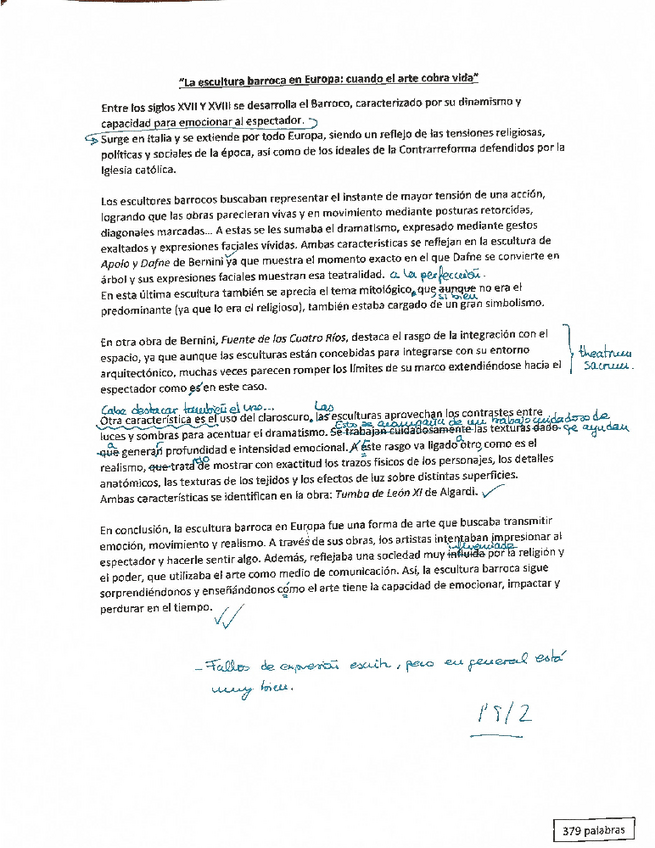 "La escultura barroca en Europa: cuando el arte cobra vida"
Entre los siglos XVII Y XVIII se desarrolla el Barroco, caracterizado por su dinamismo y
capacidad para emocionar al espectador.
Surge en Italia y se extiende por todo Europa, siendo un reflejo de las tensiones religiosas,
políticas y sociales de la época, así como de los ideales de la Contrarreforma defendidos por la
Iglesia católica.
Los escultores barrocos buscaban representar el instante de mayor tensión de una acción,
logrando que las obras parecieran vivas y en movimiento mediante posturas retorcidas,
diagonales marcadas... A estas se les sumaba el dramatismo, expresado mediante gestos
exaltados y expresiones faciales vívidas. Ambas características se reflejan en la escultura de
Apolo y Dafne de Bernini ya que muestra el momento exacto en el que Dafne se convierte en
árbol y sus expresiones faciales muestran esa teatralidad. a la perfección.
En esta última escultura también se aprecia el tema mitológico, que aunque no era el
si bien
predominante (ya que lo era el religioso), también estaba cargado de un gran simbolismo.
En otra obra de Bernini, Fuente de los Cuatro Ríos, destaca el rasgo de la integración con el
espacio, ya que aunque las esculturas están concebidas para integrarse con su entorno
arquitectónico, muchas veces parecen romper los límites de su marco extendiéndose hacia el
espectador como es en este caso.
theatrum
sacrum.
Cabe destacar también el uso... Las
Otra característica es el uso del claroscuro, las esculturas aprovechan los contrastes entre
Esto se acompaña de un trabajo cuidadoso de
luces y sombras para acentuar el dramatismo. Se trabajan cuidadosamente las texturas dado que ayudan
a
que generan profundidad e intensidad emocional. A este rasgo va ligado a otro como es el
realismo, que trata de mostrar con exactitud los trazos físicos de los personajes, los detalles
anatómicos, las texturas de los tejidos y los efectos de luz sobre distintas superficies.
Ambas características se identifican en la obra: Tumba de León XI de Algardi.
En conclusión, la escultura barroca en Europa fue una forma de arte que buscaba transmitir
emoción, movimiento y realismo. A través de sus obras, los artistas intentaban impresionar al
influenciada
espectador y hacerle sentir algo. Además, reflejaba una sociedad muy influida por la religión y
el poder, que utilizaba el arte como medio de comunicación. Así, la escultura barroca sigue
sorprendiéndonos y enseñándonos cómo el arte tiene la capacidad de emocionar, impactar y
perdurar en el tiempo.
- Fallos de expresión escrita, pero en general está
muy bien.
379 palabras